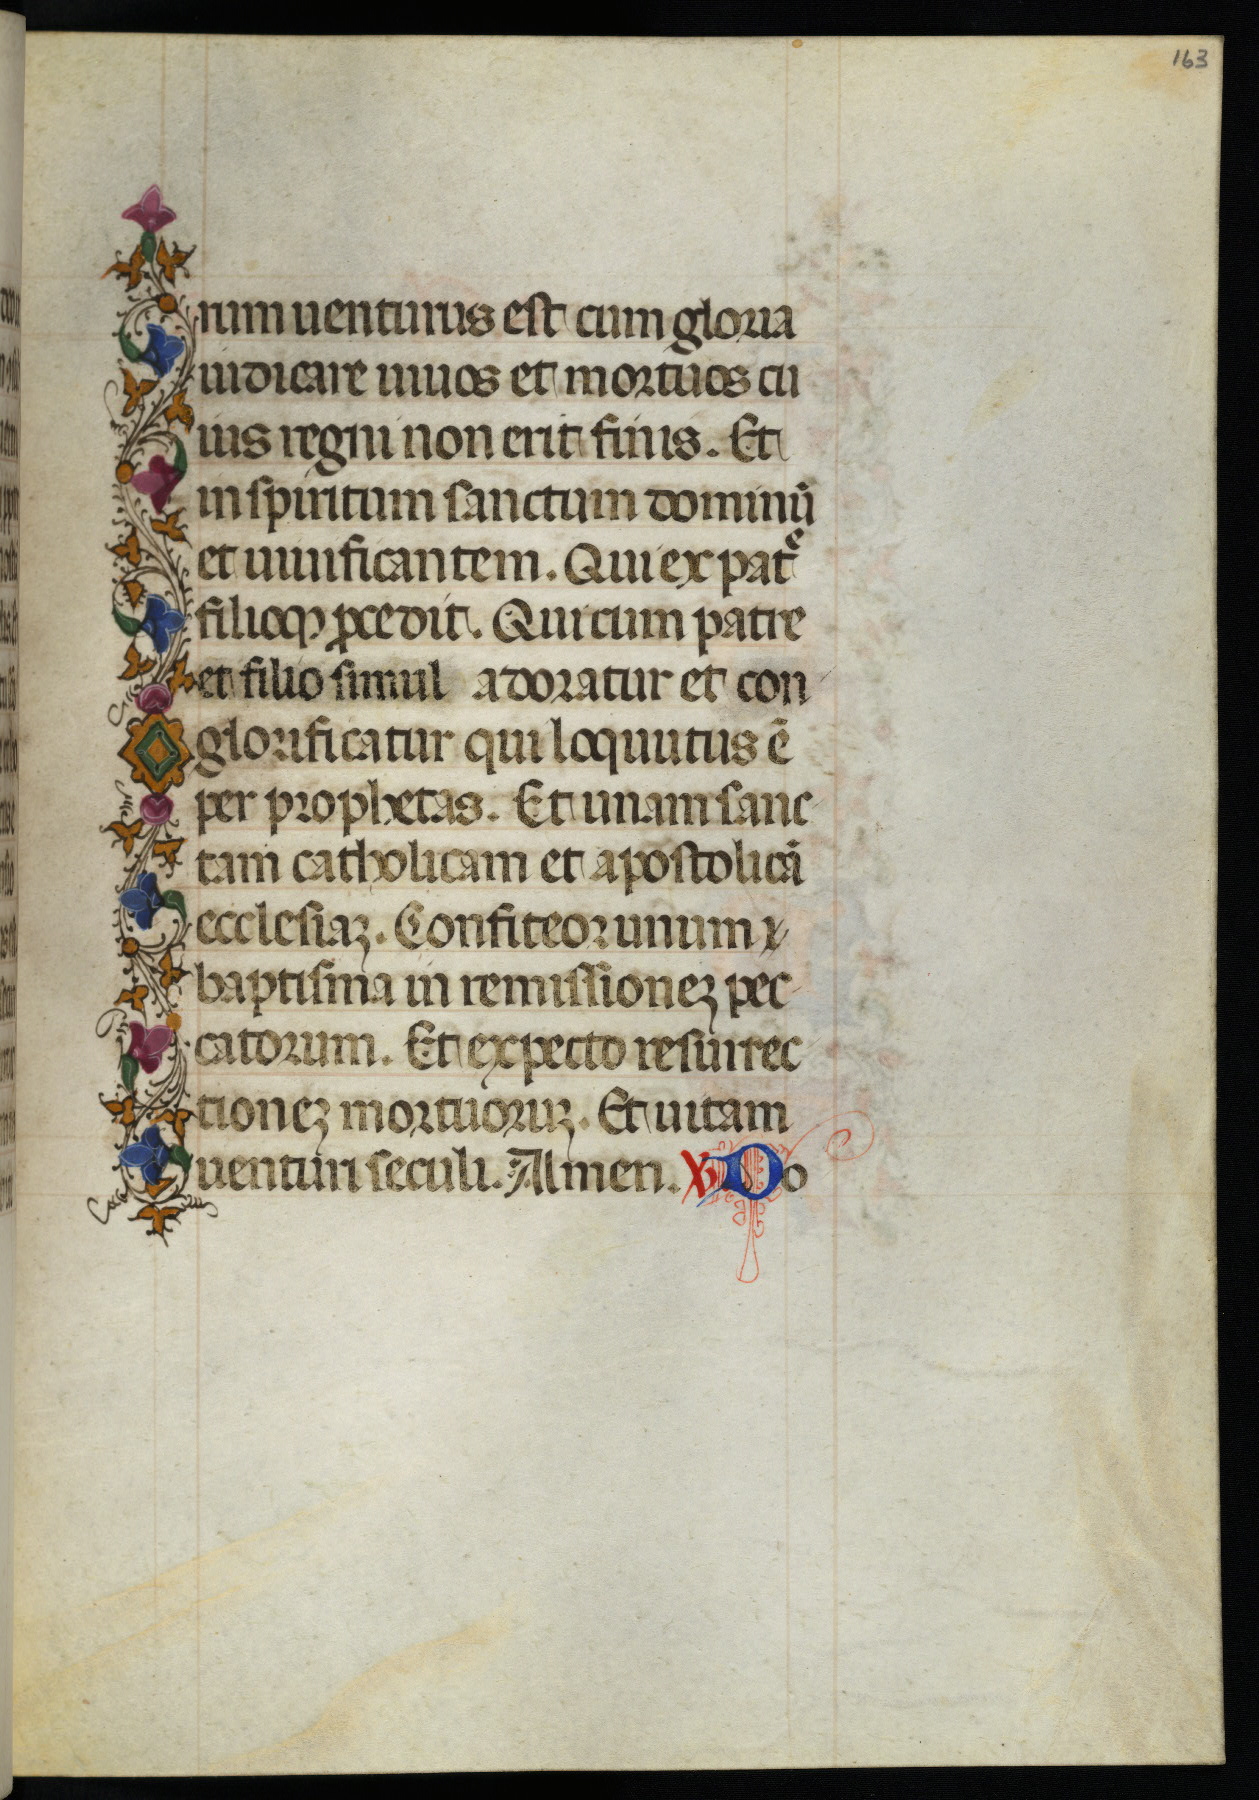 163
rum uenturus est cum gloria
iudicare uiuos et mortuos cu
ius regni non erit finis. Et
in spiritum sanctum dominũ
et uiuificantem. Qui ex patͤ
filioqꝫ ꝓcedit. Qui cum patre
et filio simul adoratur et con
glorificatur qui loquutus ẽ
per prophetas. Et unam sanc
tam catholicam et apostolicã
ecclesiaꝫ. Confiteor unum
baptisma in remissioneꝫ pec
catorum. Et expecto resurrec
tioneꝫ mortuoruꝫ. Et uitam
uenturi seculi. Amen. ℣ Do